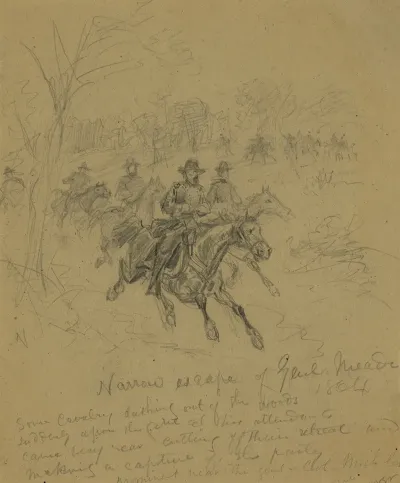 Narrow escape of Genl. Meade
1864
Some Cavalry dashing out of the woods
suddenly upon the Genl and his attendants
came very near cutting off their retreat and
making a capture of the party
near the